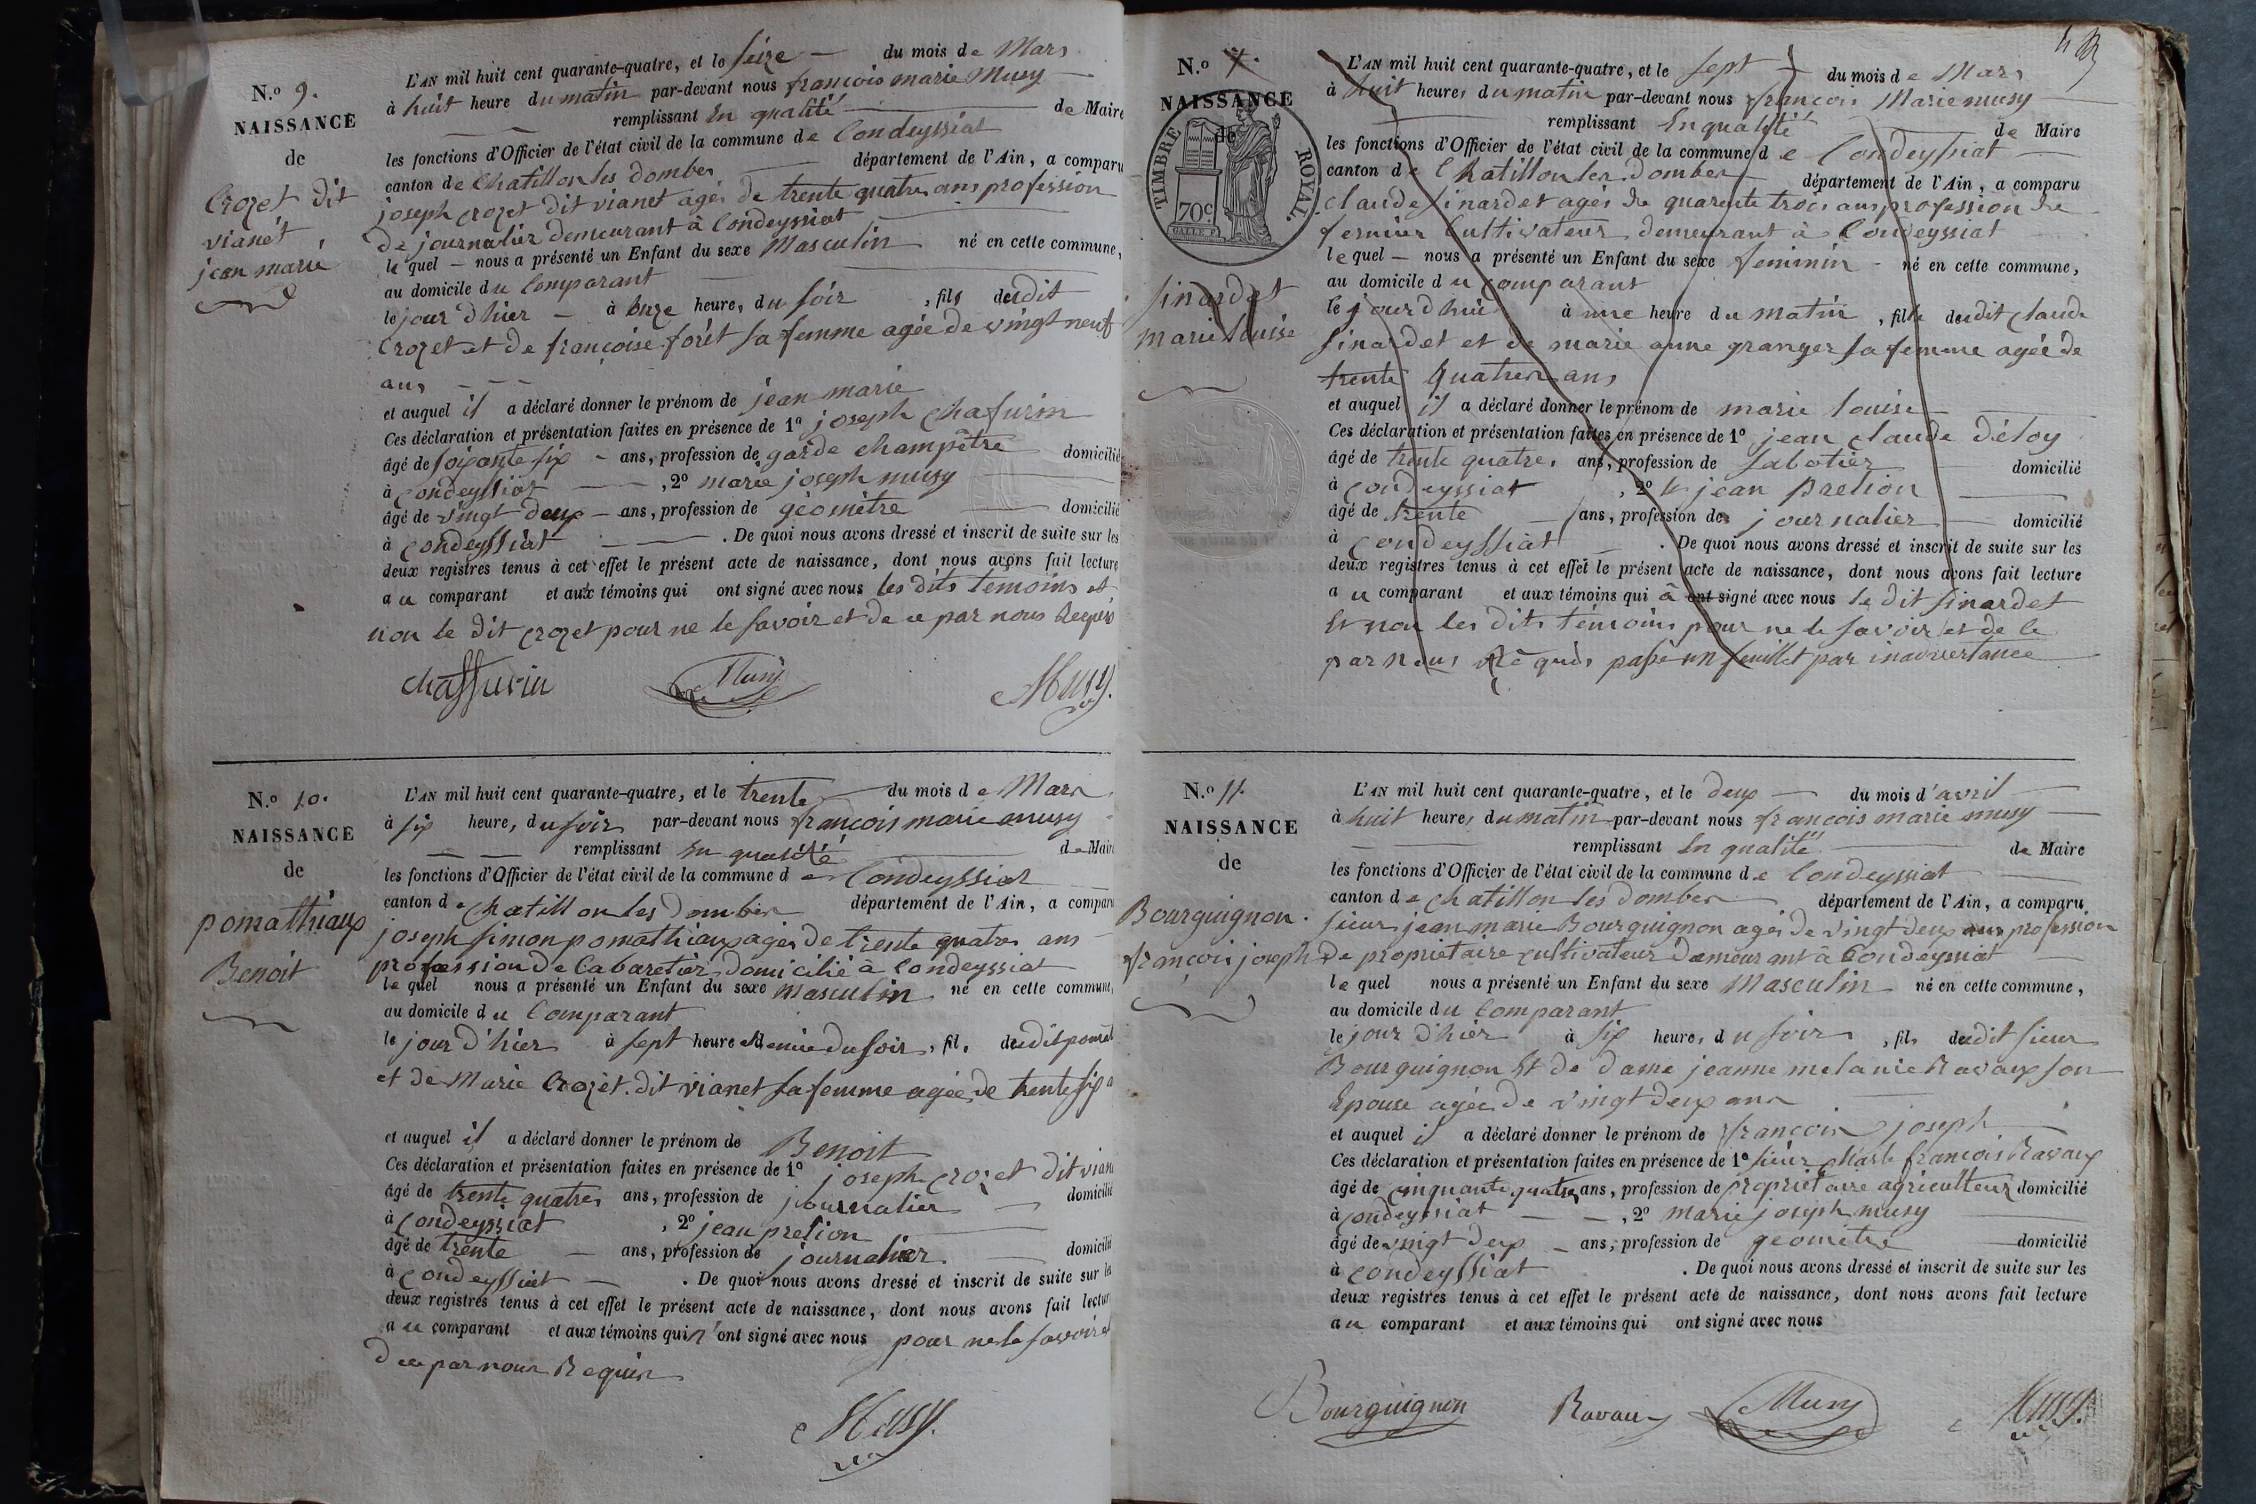 N.o 9.
NAISSANCE
de
Crozet dit
vianèt
jean marie
L'AN mil huit cent quarante-quatre, et le seize du mois de Mars
à huit heure du matin par-devant nous françois marie Musy
remplissant En qualité de Maire
les fonctions d'Officier de l'état civil de la commune de Condeyssiat
canton de Chatillon les dombes département de l'Ain, a comparu
joseph crozet dit vianet agés de trente quatre ans profession
de journalier demeurant à Condeyssiat
le quel nous a présenté un Enfant du sexe Masculin né en cette commune,
au domicile du Comparant
le jour d'hier à onze heure, du soir, fils dudit
Crozet et de françoise forêt sa femme agée de vingt neuf
ans
et auquel il a déclaré donner le prénom de jean marie
Ces déclaration et présentation faites en présence de 1o joseph chafurin
âgé de soixante six ans, profession de garde champêtre domicilié
à condeyssiat, 2o marie joseph musy
âgé de vingt deux ans, profession de géomètre domicilié
à condeyssiat. De quoi nous avons dressé et inscrit de suite sur les
deux registres tenus à cet effet le présent acte de naissance, dont nous avons fait lecture
au comparant et aux témoins qui ont signé avec nous les dits témoins et
non le dit crozet pour ne le savoir et de ce par nous Requis
chaffurin Musy Musy.
N.o 10.
NAISSANCE
de
pomathiaux
Benoit
L'AN mil huit cent quarante-quatre, et le trente du mois de Mars
à six heure, du soir par-devant nous françois marie musy
remplissant En qualité de Maire
les fonctions d'Officier de l'état civil de la commune de Condeyssiat
canton de chatillon les dombes département de l'Ain, a comparu
joseph simon pomathiaux agés de trente quatre ans
profession de Cabaretier domicilié à Condeyssiat
le quel nous a présenté un Enfant du sexe masculin né en cette commune,
au domicile du Comparant
le jour d'hier à sept heure et demie du soir, fils dudit pomat
et de Marie Crozet dit vianet sa femme agée de trente six a
et auquel il a déclaré donner le prénom de Benoit
Ces déclaration et présentation faites en présence de 1o joseph crozet dit vian
âgé de trente quatre ans, profession de journalier domicilié
à Condeyssiat, 2o jean prelion
âgé de trente ans, profession de journalier domicilié
à Condeyssiat. De quoi nous avons dressé et inscrit de suite sur les
deux registres tenus à cet effet le présent acte de naissance, dont nous avons fait lectur
au comparant et aux témoins qui n'ont signé avec nous pour ne le savoir et
de ce par nous Requis
Musy.
N.o 7.
NAISSANCE
de
TIMBRE ROYAL.
70c
sinardet
marie louise
L'AN mil huit cent quarante-quatre, et le sept du mois de Mars
à huit heures du matin par-devant nous françois Marie musy
remplissant En qualité de Maire
les fonctions d'Officier de l'état civil de la commune de Condeyssiat
canton de Chatillon les dombes département de l'Ain, a comparu
claude sinardet agés de quarente trois ans profession de
fermier Cultivateur demeurant à Condeyssiat
le quel nous a présenté un Enfant du sexe feminin né en cette commune,
au domicile du comparant
le jourd'hui à une heure du matin, fille dudit claude
sinardet et de marie anne granger sa femme agée de
trente quatre ans
et auquel il a déclaré donner le prénom de marie louise
Ces déclaration et présentation faites en présence de 1o jean claude Déloy
âgé de trente quatre ans, profession de sabotier domicilié
à condeyssiat, 2o jean prelion
âgé de trente ans, profession de journalier domicilié
à condeyssiat. De quoi nous avons dressé et inscrit de suite sur les
deux registres tenus à cet effet le présent acte de naissance, dont nous avons fait lecture
au comparant et aux témoins qui à ont signé avec nous le dit sinardet
Et non les dits témoins pour ne le savoir et de ce
par nous réquis passé un feuillet par inadvertance
N.o 11.
NAISSANCE
de
Bourguignon.
françois joseph
L'AN mil huit cent quarante-quatre, et le deux du mois d'avril
à huit heures du matin par-devant nous françois marie musy
remplissant En qualité de Maire
les fonctions d'Officier de l'état civil de la commune de Condeyssiat
canton de chatillon les dombes département de l'Ain, a comparu
sieur jean marie Bourguignon agés de vingt deux ans profession
de propriétaire cultivateur demeurant à Condeyssiat
le quel nous a présenté un Enfant du sexe Masculin né en cette commune,
au domicile du Comparant
le jour d'hier à six heures du soir, fils dudit sieur
Bourguignon Et de dame jeanne melanie Ravaux son
Epouse agée de vingt deux ans
et auquel il a déclaré donner le prénom de françois joseph
Ces déclaration et présentation faites en présence de 1o sieur charle françois Ravaux
âgé de cinquante quatre ans, profession de propriétaire agriculteur domicilié
à condeyssiat, 2o marie joseph musy
âgé de vingt deux ans, profession de géomètre domicilié
à condeyssiat. De quoi nous avons dressé et inscrit de suite sur les
deux registres tenus à cet effet le présent acte de naissance, dont nous avons fait lecture
au comparant et aux témoins qui ont signé avec nous
Bourguignon Ravaux Musy Musy.